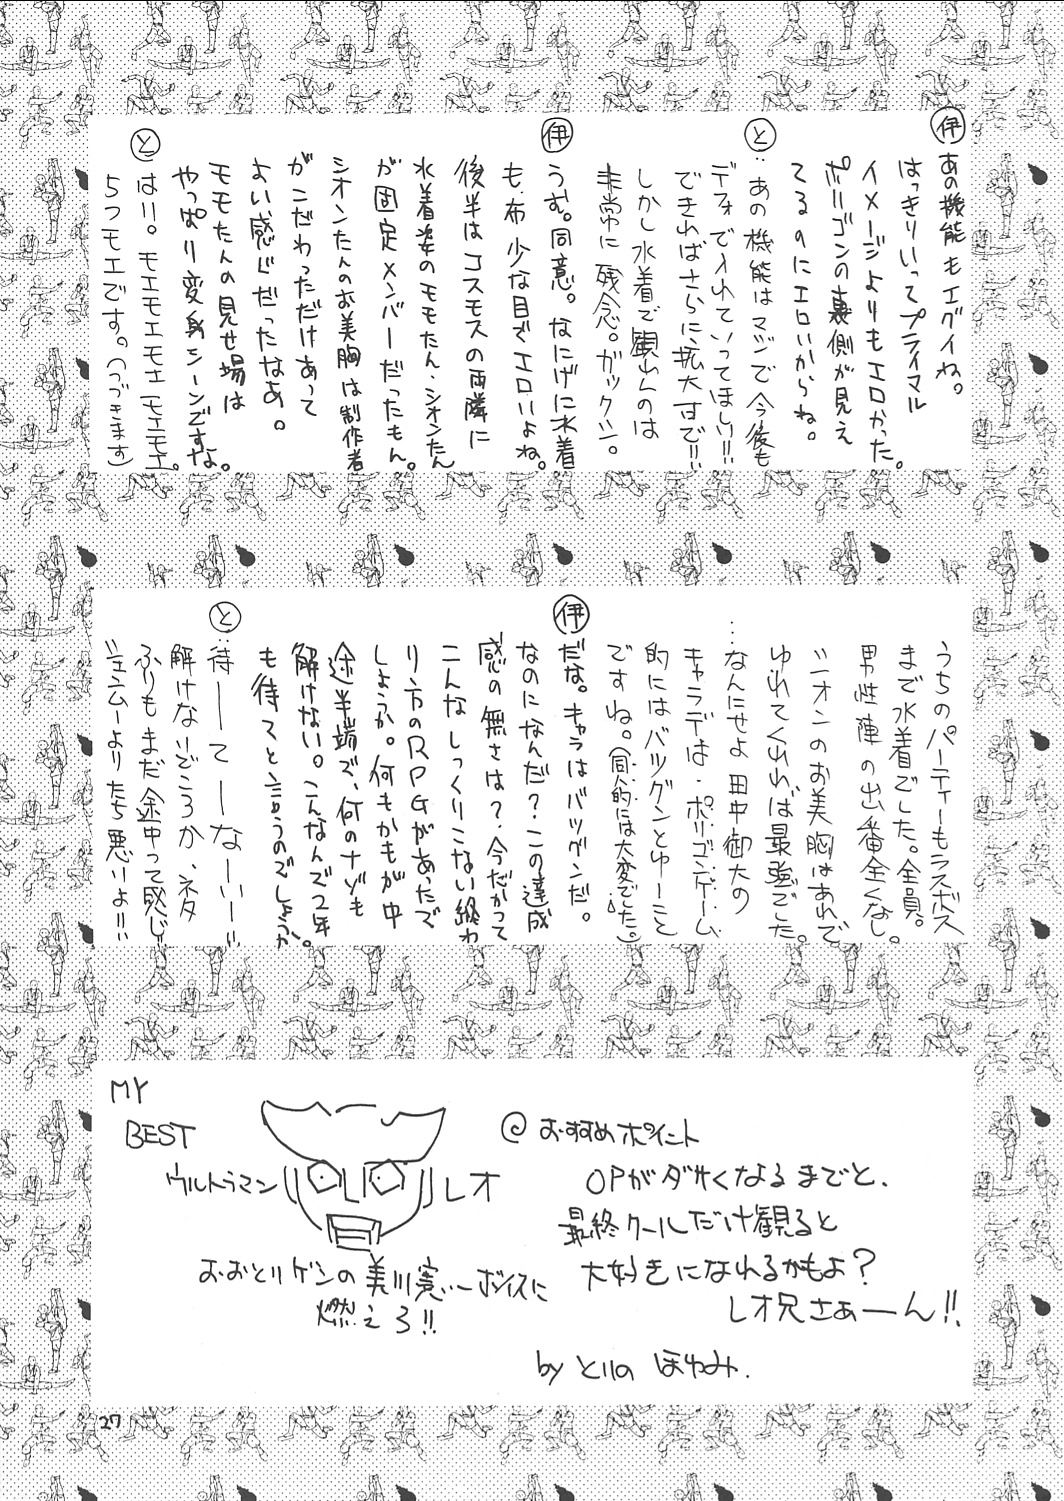 伊
あの機能もエグイね。
はっきりいってプライマル
イメージよりもエロかった。
ポリゴンの裏側が見え
てるのにエロいからね。
と
:あの機能はマジで今後も
デフォで入れていってほしい!!
できればさらに拡大までで!!
しかし水着で観れんのは
非常に残念。ガックシ。
伊
うむ。同意。なにげに水着
も、布少な目でエロいよね。
後半はコスモスの両隣に
水着姿のモモたん、シオンたん
が固定メンバーだったもん。
シオンたんのお美胸は制作者
がこだわっただけあって
よい感じだったなあ。
モモたんの見せ場は
やっぱり変身シーンですよ。
と
はい。モエモエモエモエモエ。
5つモエです。(つづきます)
うちのパーティーもラスボス
まで水着でした。全員。
男性陣の出番全くなし。
シオンのお美胸はあれで
ゆれてくれれば最強でした。
…なんにせよ田中御大の
キャラデは、ポリゴンゲーム
的にはバツグンとゆーこと
ですね。(同人的には大変でした。)
伊
だな。キャラはバツグンだ。
なのになんだ?この達成
感の無さは?今だかつて
こんなしっくりこない終わ
り方のRPGがあったで
しょうか。何もかもが中
途半端で、何のナゾも
解けない。こんなんで2年
も待てと言うのでしょうか。
と
:待ーーてーなーいー!!
解けないどころか、ネタ
ふりもまだ途中って感じ!!
シェンムーよりたち悪いよ!!
MY
BEST
ウルトラマン レオ
おおとりゲンの美川寛いーボイスに
燃えろ!!
@ おすすめポイント
OPがダサくなるまでと、
最終クールだけ観ると
大好きになれるかもよ?
レオ兄さぁーん!!
by とりの ほゆみ.
27